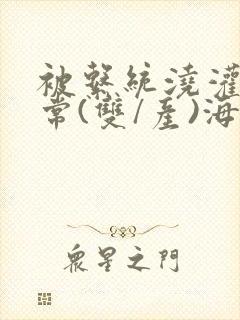 被繫統澆灌
常(雙/產)海
衆星之門